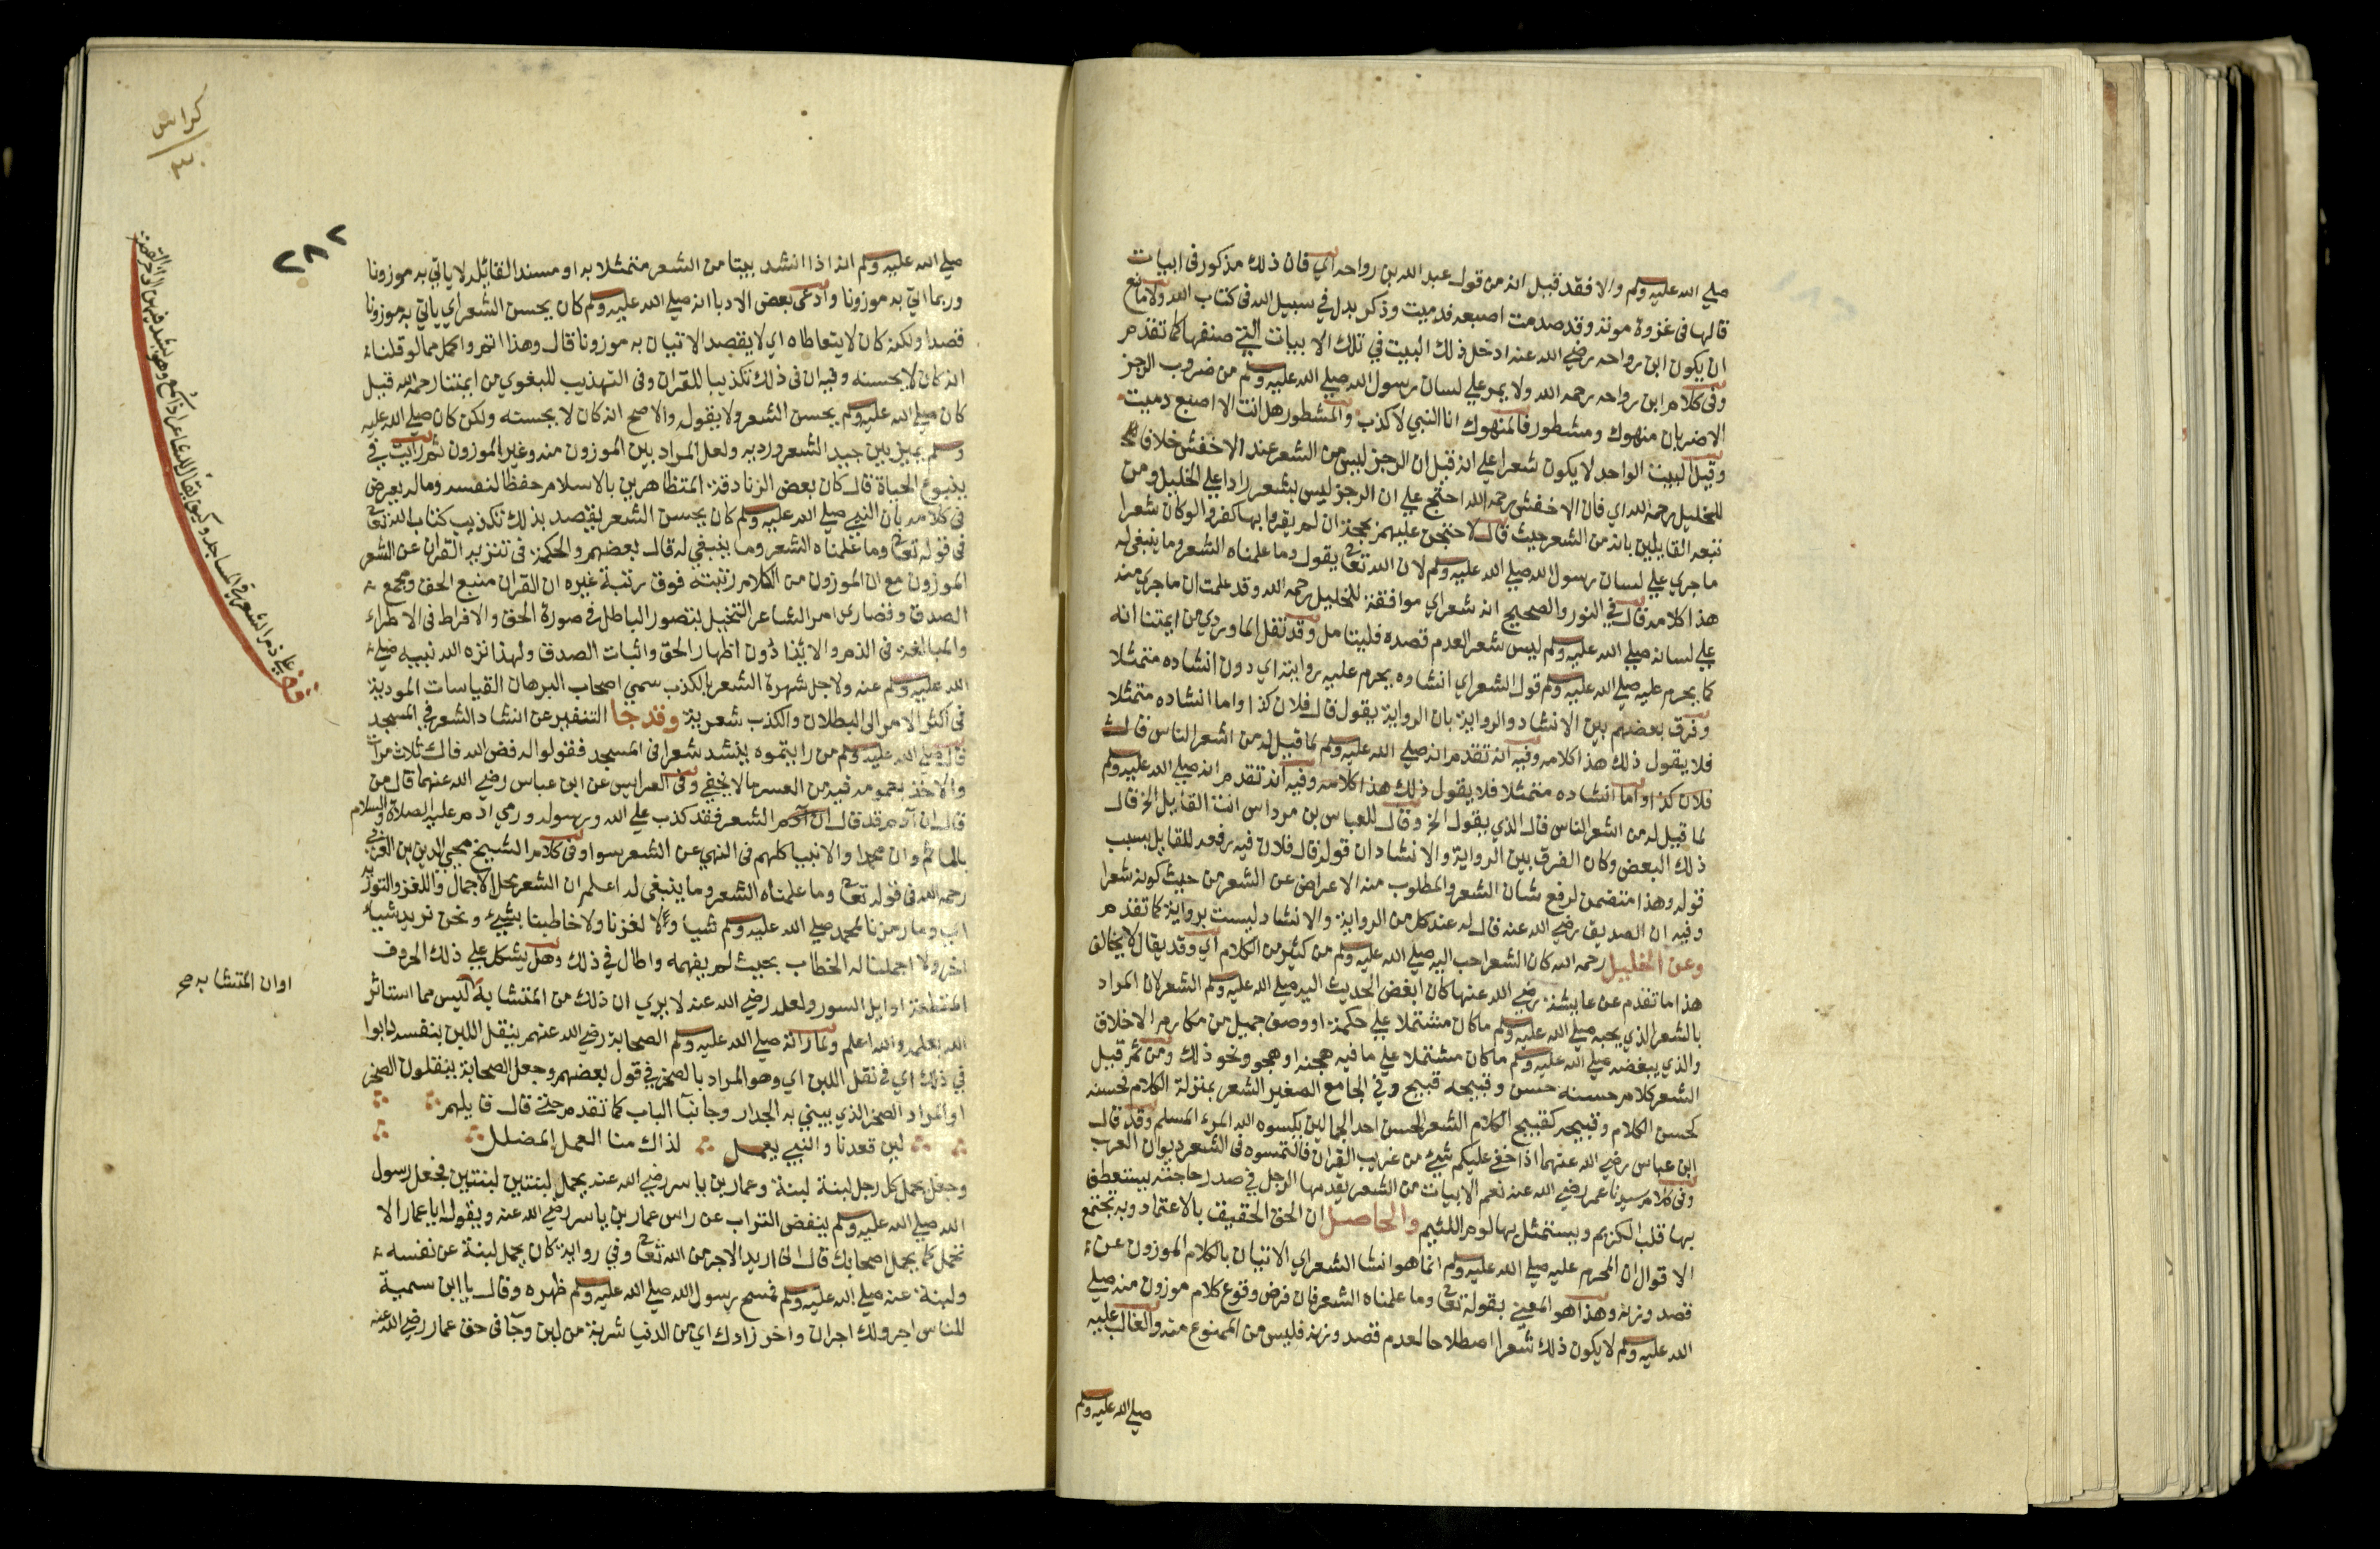 صلي الله عليه وسلم والا فقد قيل انه من قول عبد الله بن رواحه اي فان ذلك مذكور في ابيات
قالها في غزوة موتة وقد صدمت اصبعه فدميت وذكر بدل في سبيل الله في كتاب الله ولا مانع
ان يكون ابن رواحه رضي الله عنه ادخل ذلك البيت في تلك الابيات التي صنفها كما تقدم
وفي كلام ابن رواحه رحمه الله ولا يمر علي لسان رسول الله صلي الله عليه وسلم من ضروب الرجز
الا ضربان منهوك ومشطور فالمنهوك انا النبي لا كذب والمشطور هل انت الا اصبع دميت
وقيل البيت الواحد لا يكون شعرا علي انه قيل ان الرجز ليس من الشعر عند الاخفش خلافا
للخليل رحمه الله اي فان الاخفش رحمه الله احتج علي ان الرجز ليس بشعر رادا علي الخليل ومن
تبعه القايلين بانه من الشعر حيث قال لاحتجن عليهم بحجة ان لم يقروا بها كفروا لو كان شعرا
ما جري علي لسان رسول الله صلي الله عليه وسلم لان الله تعالي يقول وما علمناه الشعر وما ينبغي له
هذا كلامه قال في النور والصحيح انه شعر اي موافقة للخليل رحمه الله وقد علمت ان ما جري منه
علي لسانه صلي الله عليه وسلم ليس شعر العدم قصده فليتامل وقد نقل الماوردي من ايمتنا انه
كما يحرم عليه صلي الله عليه وسلم قول الشعر اي انشاوه يحرم عليه روايته اي دون انشاده متمثلا
وفرق بعضهم بين الانشاد والرواية بان الرواية يقول قال فلان كذا واما انشاده متمثلا
فلا يقول ذلك هذا كلامه وفيه انه تقدم انه صلي الله عليه وسلم لما قيل له من اشعر الناس قال
فلان كذا واما انشاده متمثلا فلا يقول ذلك هذا كلامه وفيه انه تقدم انه صلي الله عليه وسلم
لما قيل له من اشعر الناس قال الذي يقول الخ وقال للعباس بن مرداس انت القايل الخ قال
ذلك البعض وكان الفرق بين الرواية والانشاد ان قوله قال فلان فيه رفعه للقايل بسبب
قوله وهذا متضمن لرفع شان الشعر والمطلوب منه الاعراض عن الشعر من حيث كونه شعرا
وفيه ان الصديق رضي الله عنه قال له عند كل من الرواية والانشاد ليست برواية كما تقدم
وعن الخليل رحمه الله كان الشعر احب اليه صلي الله عليه وسلم من كثير من الكلام اي وقد يقال لا يخالف
هذا ما تقدم عن عايشة رضي الله عنها كان ابغض الحديث اليه صلي الله عليه وسلم الشعر لان المراد
بالشعر الذي يحبه صلي الله عليه وسلم ما كان مشتملا علي حكمة او وصف جميل من مكارم الاخلاق
والذي يبغضه صلي الله عليه وسلم ما كان مشتملا علي ما فيه هجنة او هجو ونحو ذلك ومن ثم قيل
الشعر كلام حسنه حسن وقبيحه قبيح وفي الجامع الصغير الشعر بمنزلة الكلام فحسنه
كحسن الكلام وقبيحه كقبيح الكلام الشعر الحسن احد الجمالين يكسوه الله المرء المسلم وقد قال
ابن عباس رضي الله عنهما اذا خفي عليكم شيء من غريب القران فالتمسوه في الشعر ديوان العرب
وفي كلام سيدنا عمر رضي الله عنه نعم الابيات من الشعر يقدمها الرجل في صدر حاجته يستعطف
بها قلب الكريم ويستمثل بها لوم اللئيم والحاصل ان الحق الحقيق بالاعتماد وبه تجتمع
الاقوال ان المحرم عليه صلي الله عليه وسلم انما هو انشا الشعر اي الاتيان بالكلام الموزون عن
قصد وزنه وهذا هو المعني بقوله تعالي وما علمناه الشعر فان فرض وقوع كلام موزون منه صلي
الله عليه وسلم لا يكون ذلك شعرا اصطلاحا لعدم قصد وزنه فليس من الممنوع منه والغالب عليه
صلي الله عليه وسلم
كراس
٢٨٢
صلي الله عليه وسلم انه اذا انشد بيتا من الشعر متمثلا به او مسندا لقائله لا ياتي به موزونا
وربما اتي به موزونا وادعي بعض الادبا انه صلي الله عليه وسلم كان يحسن الشعر اي ياتي به موزونا
قصدا ولكنه كان لا يتعاطاه اي لا يقصد الاتيان به موزونا قال وهذا اتم واكمل مما لو قلنا
انه كان لا يحسنه وفيه ان في ذلك تكذيبا للقران وفي التهذيب للبغوي من ايمتنا رحمه الله قيل
كان صلي الله عليه وسلم يحسن الشعر ولا يقوله والاصح انه كان لا يحسنه ولكن كان صلي الله عليه
وسلم يميز بين جيد الشعر ورديه ولعل المراد بين الموزون منه وغير الموزون ثم رايت في
ينبوع الحياة قال كان بعض الزنادقة المتظاهرين بالاسلام حفظا لنفسه وماله يعرض
في كلامه بان النبي صلي الله عليه وسلم كان يحسن الشعر يقصد بذلك تكذيب كتاب الله تعالي
في قوله تعالي وما علمناه الشعر وما ينبغي له قال بعضهم والحكمة في تنزيه القران عن الشعر
الموزون مع ان الموزون من الكلام رتبته فوق رتبة غيره ان القران منبع الحق ومجمع
الصدق وقصاري امر الشاعر التخيل بتصور الباطل في صورة الحق والافراط في الاطراء
والمبالغة في الذم والايذا دون اظهار الحق واثبات الصدق ولهذا نزه الله نبيه صلي
الله عليه وسلم عنه ولاجل شهرة الشعر بالكذب سمي اصحاب البرهان القياسات المودية
في اكثر الامر الي البطلان والكذب شعرية وقد جا التنفير عن انشاد الشعر في المسجد
قال صلي الله عليه وسلم من رايتموه ينشد شعرا في المسجد فقولوا له فض الله فاك ثلاث مرات
والاخذ بعمومه فيه من العسر ما لا يخفي وفي العرايس عن ابن عباس رضي الله عنهما قال من
قال ان ادم قد قال الشعر فقد كذب علي الله ورسوله ورمي ادم عليه الصلاة والسلام
بالماثم وان محمدا والانبيا كلهم في النهي عن الشعر سوا وفي كلام الشيخ محيي الدين بن العربي
رحمه الله في قوله تعالي وما علمناه الشعر وما ينبغي له اعلم ان الشعر محل الاجمال واللغز والتورية
اي وما رمزنا لمحمد صلي الله عليه وسلم شيا ولا لغزنا ولا خاطبنا بشيء ونحن نريد شيا
اخر ولا اجملنا له الخطاب بحيث لم يفهمه واطال في ذلك وهل يشكل علي ذلك الحروف
المقطعة اوايل السور ولعله رضي الله عنه لا يري ان ذلك من المتشابه ليس مما استاثر
الله بعلمه والله اعلم ولما راته صلي الله عليه وسلم الصحابة رضي الله عنهم ينقل اللبن بنفسه دابوا
في ذلك اي في نقل اللبن اي وهو المراد بالصخر في قول بعضهم وجعل الصحابة ينقلون الصخر
او المراد الصخر الذي يبني به الجدار وجانبا الباب كما تقدم حتي قال قايلهم
لين قعدنا والنبي يعمل لذاك منا العمل المضلل
وجعل يحمل كل رجل لبنة لبنة وعمار بن ياسر رضي الله عنه يحمل لبنتين لبنتين فجعل رسول
الله صلي الله عليه وسلم ينفض التراب عن راس عمار بن ياسر رضي الله عنه ويقول يا عمار الا
تحمل كما يحمل اصحابك قال اني اريد الاجر من الله تعالي وفي رواية كان يحمل لبنة عن نفسه
ولبنة عنه صلي الله عليه وسلم فمسح رسول الله صلي الله عليه وسلم ظهره وقال يا ابن سمية
للناس اجر ولك اجران واخر زادك اي من الدنيا شربة من لبن وجا في حق عمار رضي الله عنه
او ان المتشابه صح